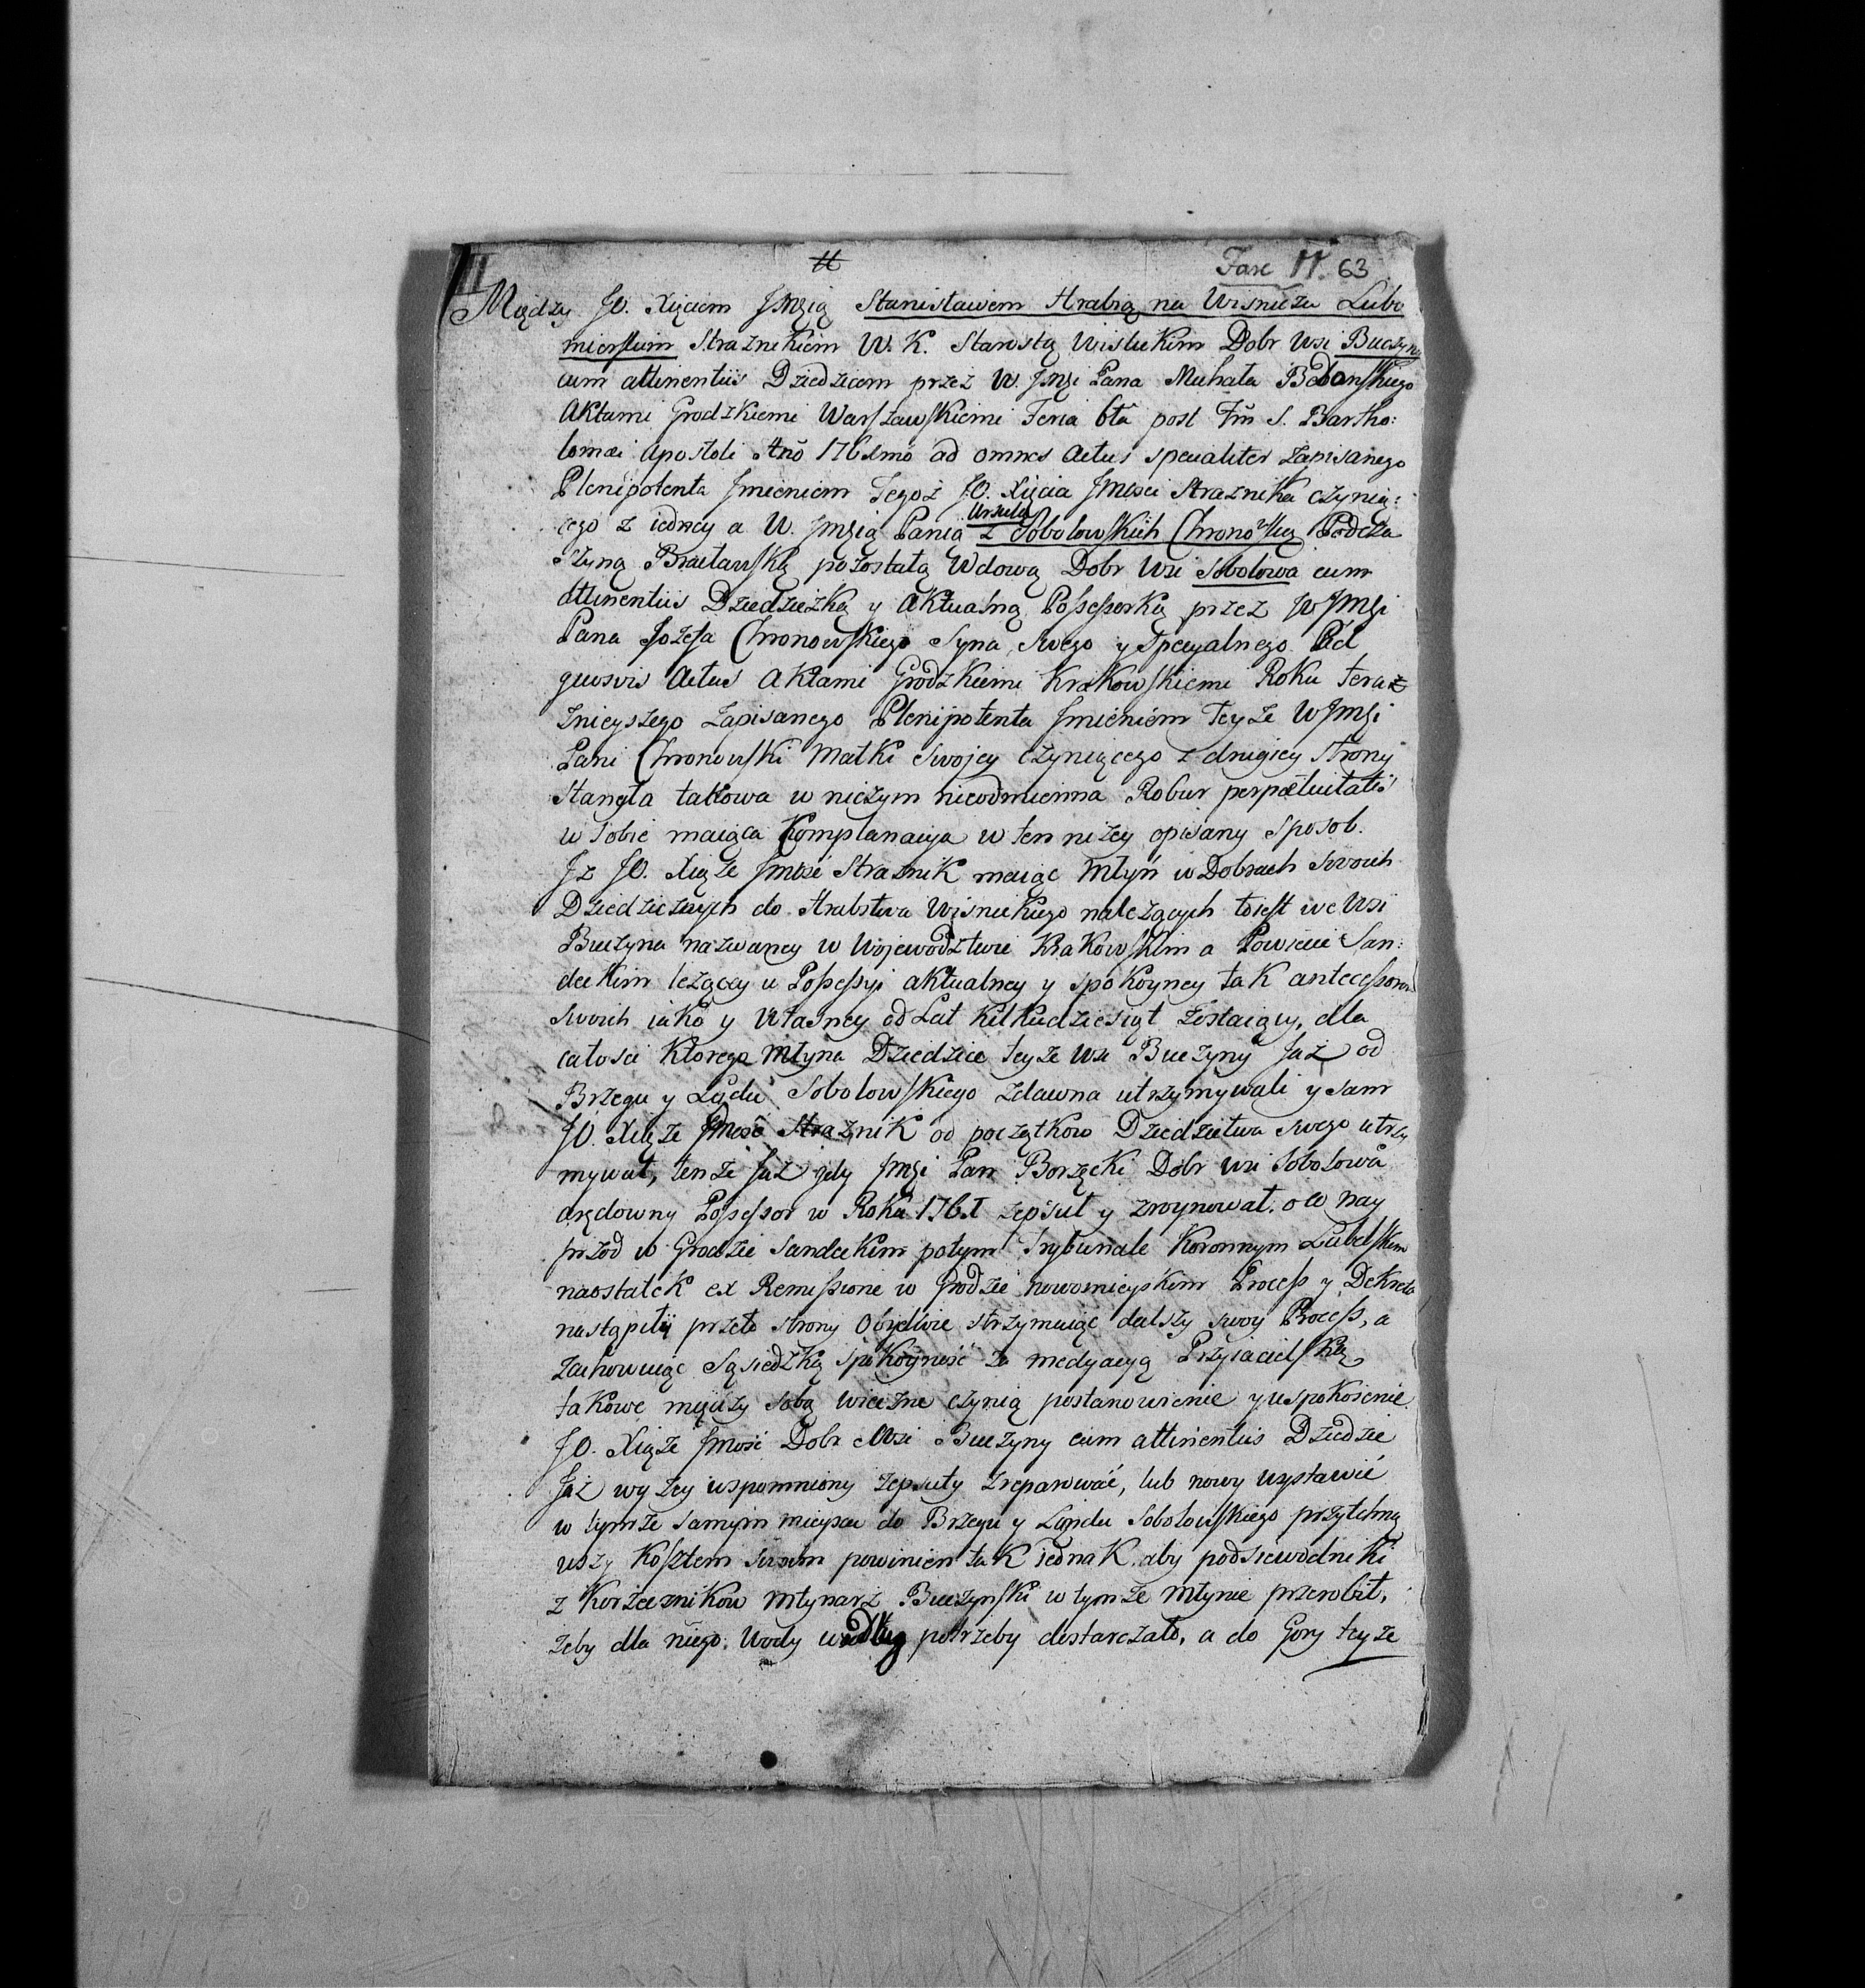 II # Fasc II. 63
Między JO. Xięciem Jmcią Stanisławem Hrabią na Wisniczu Lubo
mierskim Straznikiem W. K. Starostą Wislickim Dobr Wsi Buczyny
cum attinentiis Dziedzicem przez W. Jmci Pana Michała
Aktami Grodzkiemi Warszawskiemi Feria 6ta post Fm S. Bartho:
lomæi Apostoli Ano ad omnes Actus specialiter zapisanego
Plenipotenta Jmieniem Tegoż JO. Xięcia Jmosci Straznika czynią:
cego z iedney a W. Jmcią Panią Urszulą z Sobolowskich Chronowską Podcza
szyną Bracławską pozostałą Wdową Dobr Wsi Sobolowa cum
attinentiis Dziedziczką y Aktualną Possessorką przez WJmci
Pana Jozefa Chronowskiego Syna swego y specyalnego Ad
quosvis Actus Aktami Grodzkiemi Krakowskiemi Roku teraz
znieyszego zapisanego Plenipotenta Jmieniem Teyze WJmci
Pani Chronowski Matki swojey czyniącego z drugiey strony
stanęła takowa w niczym nieodmienna Robur perpetuitatis
w sobie maiąca Komplanacya w ten nizey opisany sposob.
Jz JO. Xiąze Jmosć Straznik maiąc Młyn w Dobrach Swoich
Dziedzicznych do Hrabstwa Wisnickiego nalezących toiest we Wsi
Buczyna nazwaney w Wojewodztwie Krakowskim a Powiecie San:
deckim leżący w Possessyi aktualney y spokoyney tak antecessorow
swoich iako y Własney od Lat Kilkudziesiąt zostaiący, dla
całosci Ktorego Młyna Dziedzice teyze Wsi Buczyny Jaz od
Brzegu y Lądu Sobolowskiego zdawna utrzymywali y sam
JO. Xiąze Jmość Straznik od początkow Dziedzictwa swego utrzy
mywał, tenze Jaz gdy Jmci Pan Borzęcki Dobr wsi Sobolowa
arędowny Possessor w Roku 1761 zepsuł y zruynował. o co nay
przod w Grodzie Sandeckim potym Trybunale Koronnym Lubelskim
naostatek ex Remissione w Grodzie nowomieyskim Process y Dekreta
nastąpiły przeto strony Obydwie strzymaiąc dalszy swoy Process, a
zachowuiąc Sąsiedzką spokoyność za medyacyą Przyiacielską
takowe między sobą wieczne czynią postanowienie y uspokoienie.
JO. Xiąze Jmość Dobr Wsi Buczyny cum attinentiis Dziedzic
Jaz wyzey wspomniony zepsuty zreparować, lub nowy wystawić
w tymze samym mieyscu do Brzegu y Lądu Sobolowskiego przytchną
wszy Kosztem swoim powinien tak iednak, aby podsiewodniki
z Korzecznikow Młynarz Buczynski w tymze Młynie przerobił,
zeby dla niego Wody według potrzeby dostarczało, a do Gory teyze